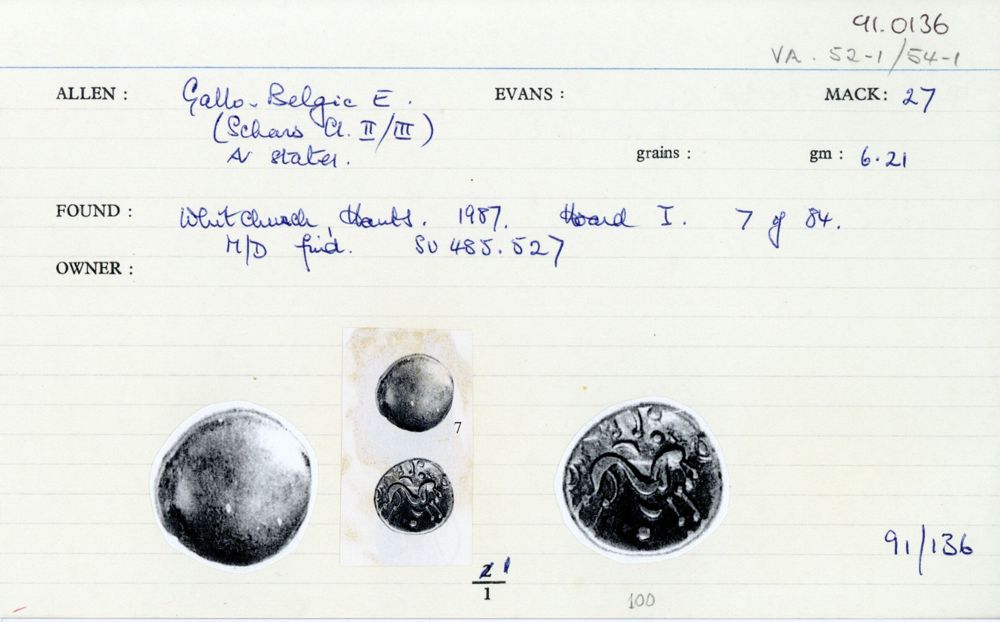 91.0136
VA. 52-1/54-1
ALLEN : Gallo-Belgic E. EVANS : MACK: 27
(Schars Cl. II/III)
AV stater. grains : gm : 6.21
FOUND : Whitchurch, Hants. 1987. Hoard I. 7 of 84.
M/D find. SU 485.527
OWNER :
7
91/136
1
1
100